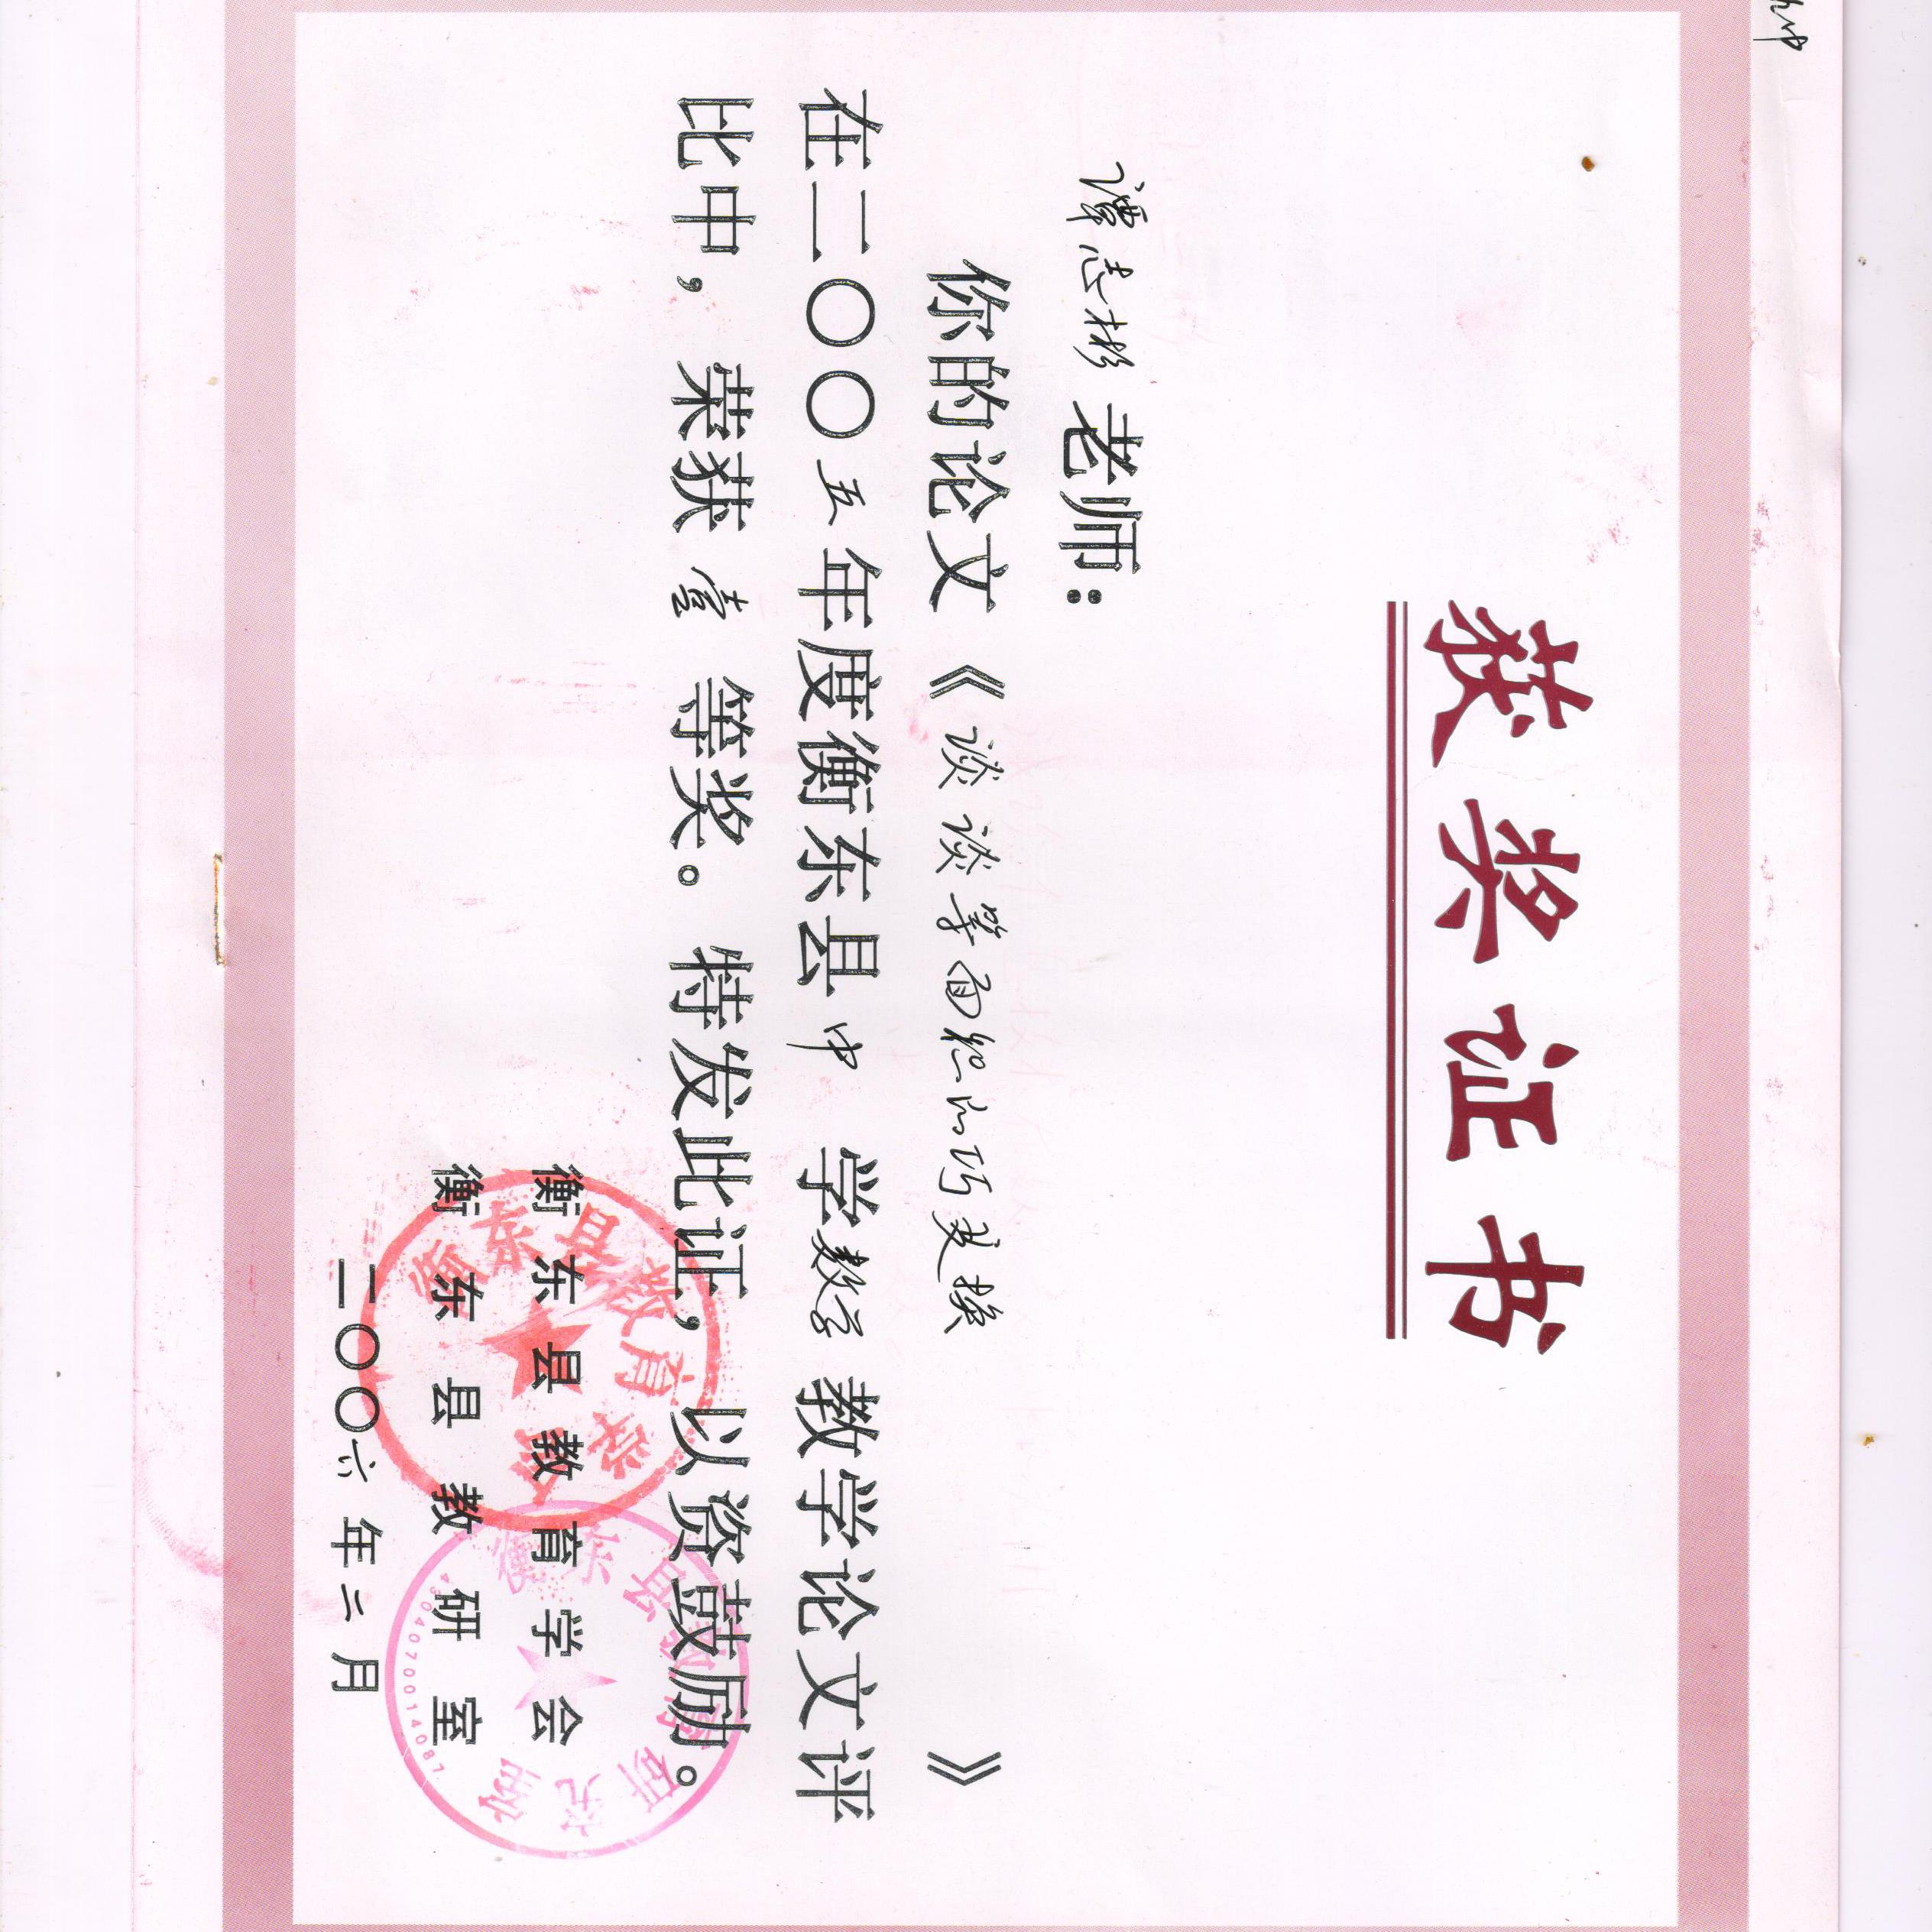 获奖证书
谭志彬老师：
你的论文《谈谈等面积的巧变换》
在二〇〇五年度衡东县中学数学教学论文评
比中，荣获壹等奖。特发此证，以资鼓励。
衡东县教育学会
衡东县教研室
二〇〇六年二月
衡东县教育学会
4304070014087